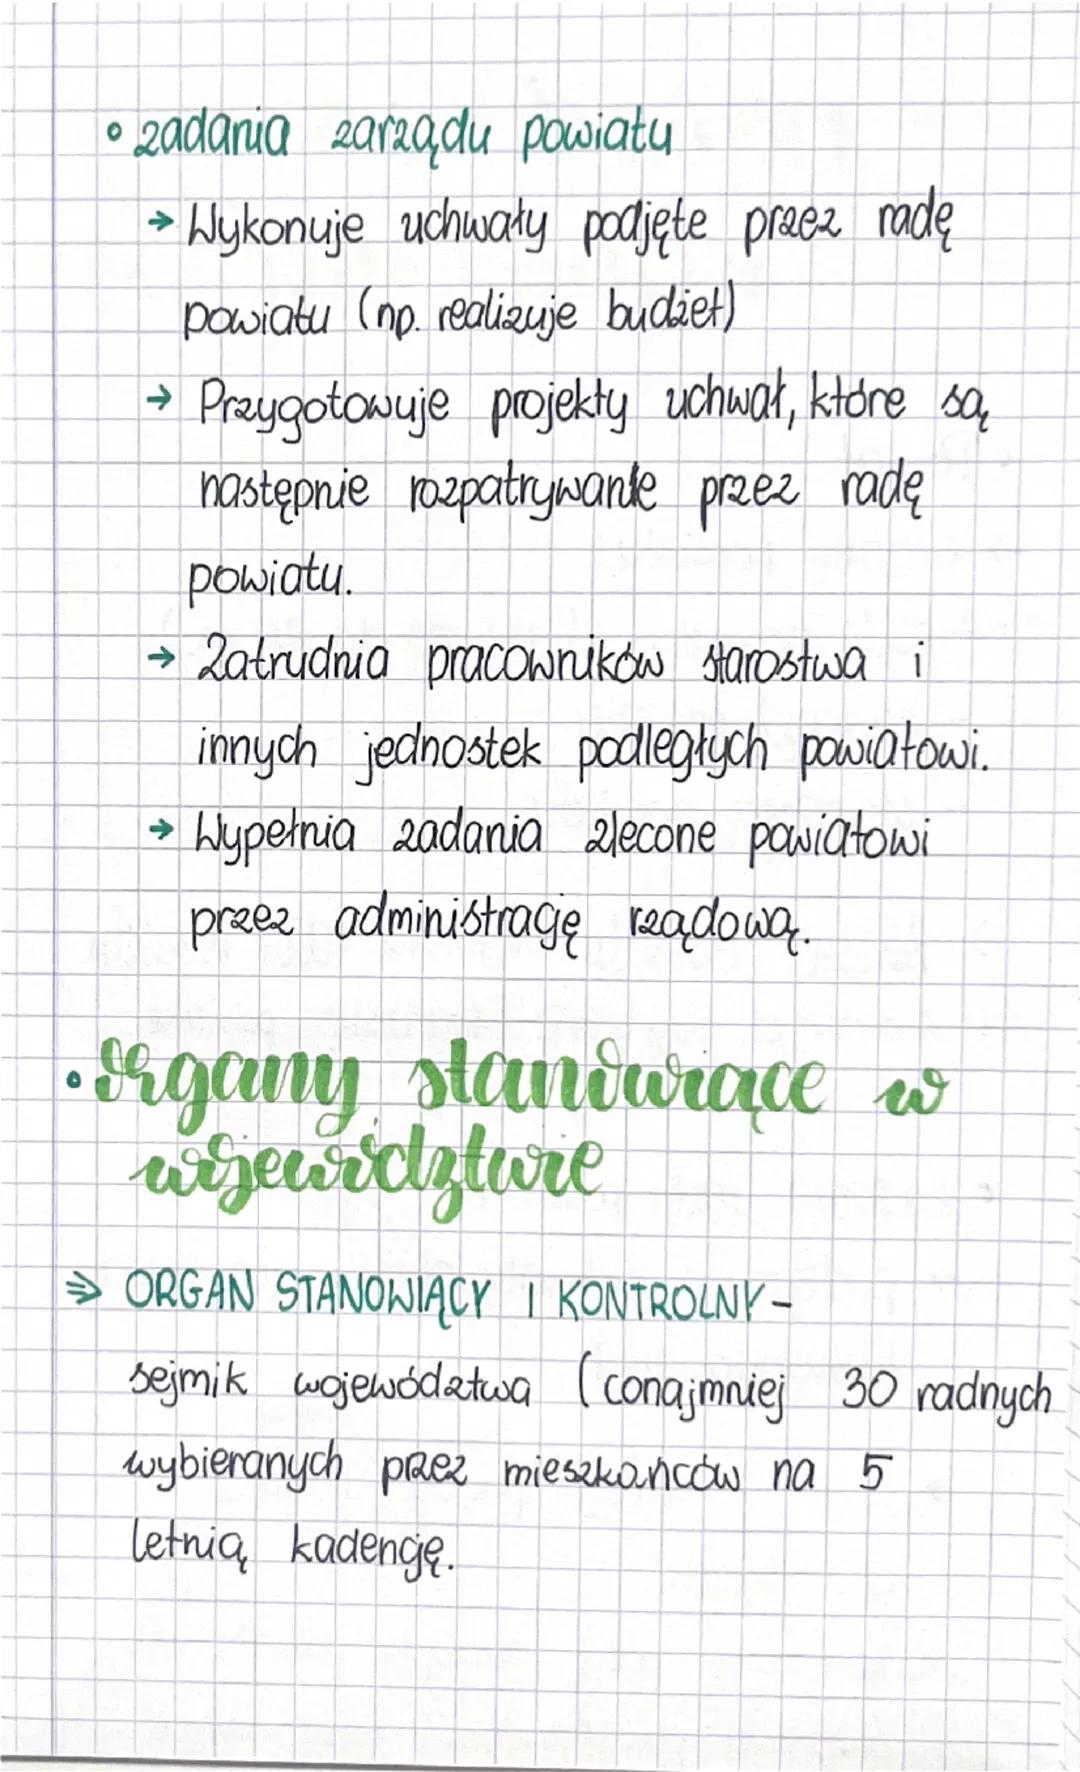 • zadania zarządu powiatu
→ Wykonuje uchwały podjęte przez radę
powiatu (np. realizuje budżet)
→ Przygotowuje projekty uchwał, które są
następnie rozpatrywane przez radę
powiatu.
→ Zatrudnia pracowników starostwa i
innych jednostek podległych powiatowi.
→ Wypełnia zadania zlecone powiatowi
przez administrację rządową.
• Organy stanowiące w
województwie
⇒ ORGAN STANOWIĄCY I KONTROLNY -
sejmik województwa (conajmniej 30 radnych
wybieranych przez mieszkańców na 5
letnią kadencję.